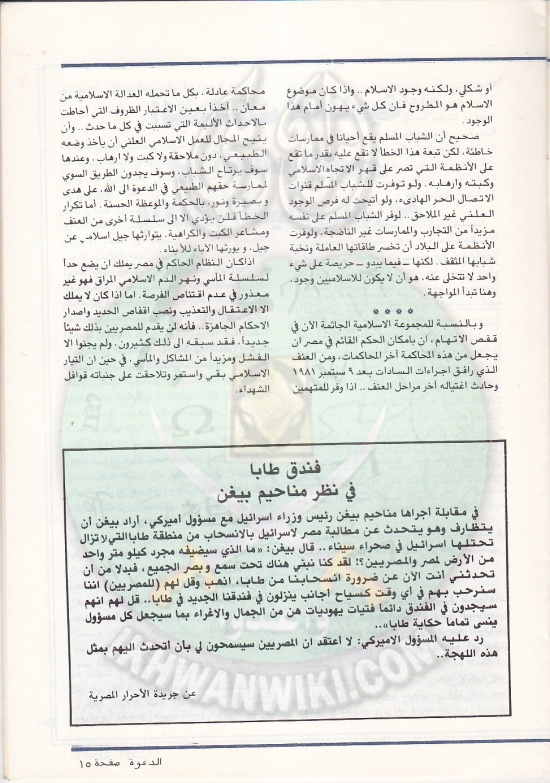 أو شكلي، ولكنه وجود الاسلام .. واذا كان موضوع
الاسلام هو المطروح فان كل شيء يهون أمام هذا
الوجود.
صحيح أن الشباب المسلم يقع أحيانا في ممارسات
خاطئة، لكن تبعة هذا الخطأ لا تقع عليه بقدر ما تقع
على الأنظمة التي تصر على قهر الاتجاه الاسلامي
وكبته وارهابه. ولو توفرت للشباب المسلم قنوات
الاتصال الحر الهادىء، ولو أتيحت له فرص الوجود
العلني غير الملاحق .. لوفر الشباب المسلم على نفسه
مزيداً من التجارب والممارسات غير الناضجة، ولوفرت
الأنظمة على البلاد أن تخسر طاقاتها العاملة ونخبة
شبابها المثقف. لكنها ــ فيما يبدو ــ حريصة على شيء
واحد لا تتخلى عنه، هو أن لا يكون للاسلاميين وجود،
وهنا تبدأ المواجهة.
* * * *
وبالنسبة للمجموعة الاسلامية الجاثمة الآن في
قفص الاتهام، ان بامكان الحكم القائم في مصر ان
يجعل من هذه المحاكمة آخر المحاكمات، ومن العنف
الذي رافق اجراءات السادات بعد ٩ سبتمبر ١٩٨١
وحادث اغتياله آخر مراحل العنف .. اذا وفر للمتهمين
محاكمة عادلة، بكل ما تحمله العدالة الاسلامية من
معان .. أخذاً بعين الاعتبار الظروف التي أحاطت
بالاحداث الأليمة التي تسببت في كل ما حدث .. وأن
يتيح المجال للعمل الاسلامي العلني أن يأخذ وضعه
الطبيعي، دون ملاحقة ولا كبت ولا ارهاب. وعندها
سوف يرتاح الشباب، وسوف يجدون الطريق السوي
لممارسة حقهم الطبيعي في الدعوة الى الله، على هدى
وبصيرة ونور، بالحكمة والموعظة الحسنة. أما تكرار
الخطأ فلن يؤدي الا الى سلسلة أخرى من العنف
ومشاعر الكبت والكراهية، يتوارثها جيل اسلامي عن
جيل، ويورثها الآباء للأبناء.
اذا كان النظام الحاكم في مصر يملك ان يضع حداً
لسلسلة المآسي ونهر الدم الاسلامي المراق فهو غير
معذور في عدم اقتناص الفرصة. اما اذا كان لا يملك
الا الاعتقال والتعذيب ونصب اقفاص الحديد واصدار
الاحكام الجاهزة .. فأنه لن يقدم للمصريين بذلك شيئاً
جديداً. فقد سبقه الى ذلك كثيرون، ولم يجنوا الا
الفشل ومزيداً من المشاكل والمآسي. في حين ان التيار
الاسلامي بقي واستمر وتلاحقت على جنباته قوافل
الشهداء.
فندق طابا
في نظر مناحيم بيغن
في مقابلة أجراها مناحيم بيغن رئيس وزراء اسرائيل مع مسؤول أميركي، أراد بيغن أن
يتظارف وهو يتحدث عن مطالبة مصر لاسرائيل بالانسحاب من منطقة طابا التي لا تزال
تحتلها اسرائيل في صحراء سيناء .. قال بيغن: «ما الذي سيضيفه مجرد كيلو متر واحد
من الأرض لمصر والمصريين؟! لقد كنا نبني هناك تحت سمع وبصر الجميع، فبدلا من أن
تحدثني أنت الآن عن ضرورة انسحابنا من طابا، اذهب وقل لهم (للمصريين) اننا
سنرحب بهم في أي وقت كسياح أجانب ينزلون في فندقنا الجديد في طابا .. قل لهم انهم
سيجدون في الفندق دائماً فتيات يهوديات هن من الجمال والاغراء بما سيجعل كل مسؤول
ينسى تماماً حكاية طابا» ..
رد عليه المسؤول الاميركي: لا أعتقد ان المصريين سيسمحون لي بأن أتحدث اليهم بمثل
هذه اللهجة ..
عن جريدة الأحرار المصرية
IKHWANWIKI.COM
الدعوة صفحة ١٥